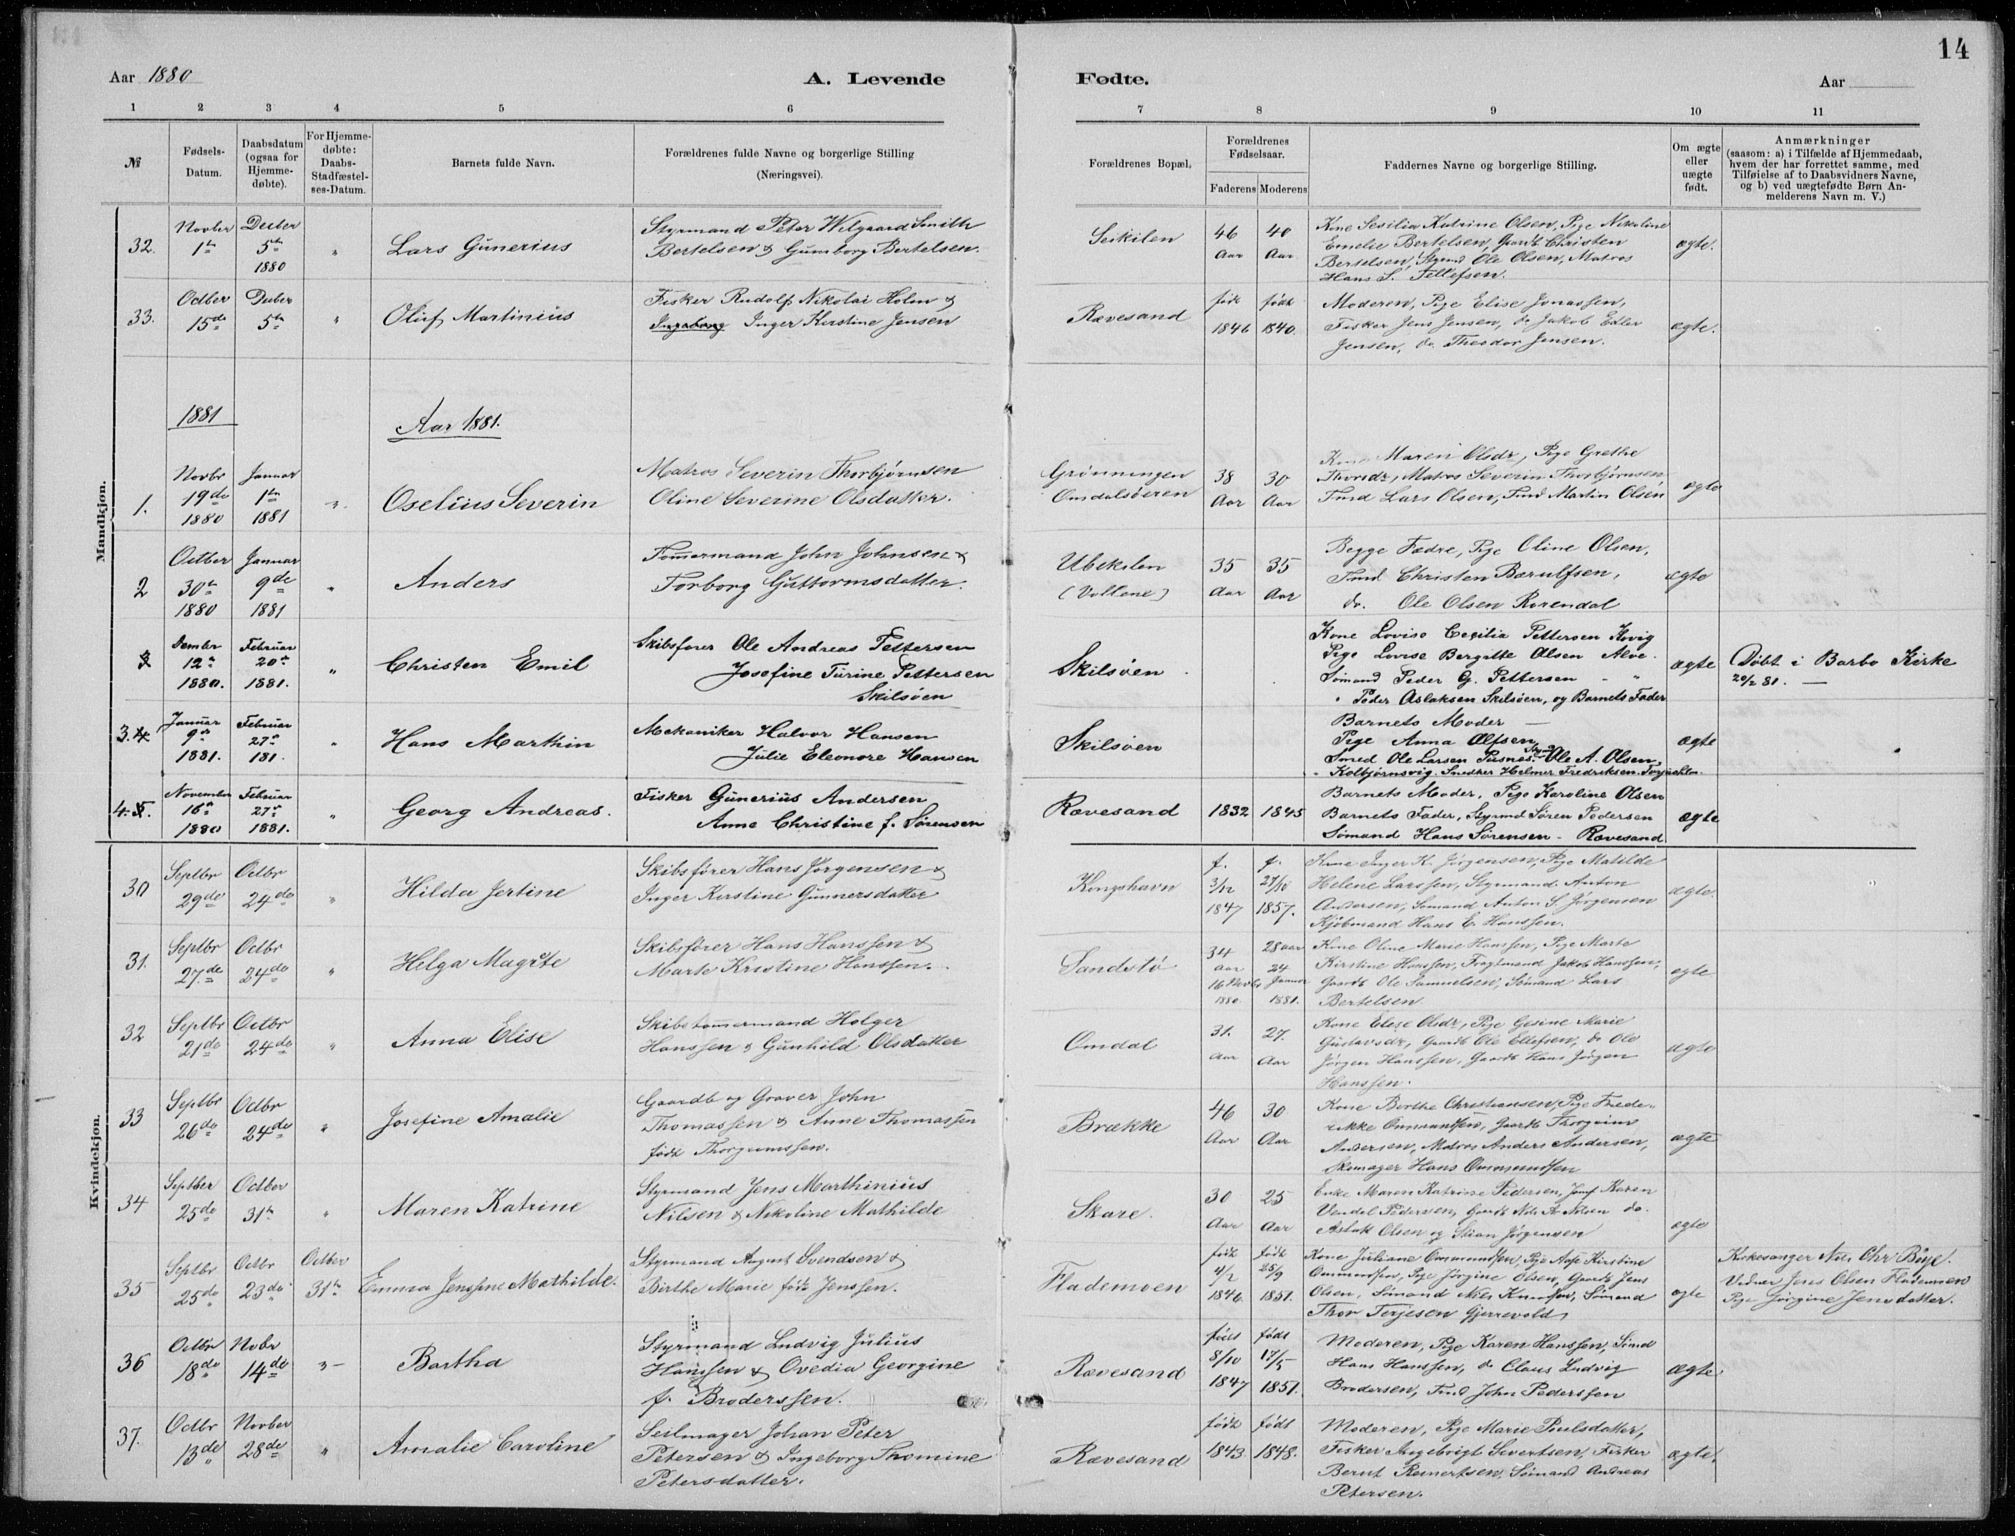 14
Aar 1880
A. Levende
Fødte.
Aar
1 2 3 4 5 6 7 8 9 10 11
№
Fødsels-Datum.
Daabsdatum (ogsaa for Hjemme-døbte).
For Hjemme-døbte: Daabs-Stadfæstel-ses-Datum.
Barnets fulde Navn.
Forældrenes fulde Navne og borgerlige Stilling
(Næringsvei).
Forældrenes Bopæl.
Forældrenes Fødselsaar.
Faderens Moderens
Faddernes Navne og borgerlige Stilling.
Om ægte eller uægte født.
Anmærkninger
(saasom: a) i Tilfælde af Hjemmedaab,
hvem der har forrettet samme, med
Tilføielse af to Daabsvidners Navne,
og b) ved uægtefødte Børn An-
melderens Navn m. V.)
Mandkjøn.
32. Novber 1te Decber 5te 1880 " Lars Gunerius
Styrmand Peter Wilgaard Smith
Bertelsen & Gunborg Bertelsen.
Seikilen 46 Aar 40 Aar
Kone Sesilia Katrine Olsen, Pige Nikoline
Emelie Bertelsen, Gaardb Christen
Bertelsen, Styrmd Ole Olsen, Matros
Hans S. Tellefsen.
ægte.
33. Octber 15de Decber 5te " Oluf Martinius
Fisker Rudolf Nikolai Holm &
Ingeborg Inger Kirstine Jensen
Rævesand født 1846 født 1840.
Moderen, Pige Elise Jonassen,
Fisker Jens Jensen, do Jakob Edler
Jensen, do Theodor Jensen.
ægte.
1881
Aar 1881.
1. Novbr 19de 1880 Januar 1te 1881 " Oselius Severin
Matros Severin Thorbjørnsen
Oline Severine Olsdatter.
Grønningen
Omdalsøeren
38 Aar 30 Aar
Kone Maren Olsdr, Pige Grethe
Thorsdr, Matros Severin Thorbjørnsen
Tmd Lars Olsen, Tmd Martin Olsen
ægte
2 Octber 30te 1880 Januar 9de 1881 " Anders
Tømermand John Johnsen &
Torborg Guttormsdatter.
Ubekilen
(Voltene)
35 Aar 35 Aar
Begge Fædre, Pige Oline Olsen,
Tmd. Christen Barulfsen,
do. Ole Olsen Rosendal
ægte
3 12te 1880. Februar 20de 1881. " Christen Emil
Skibsfører Ole Andreas Pettersen
Josefine Turine Pettersen
Skilsøen
Skilsøen
Kone Lovise Cecilia Pettersen Kovig
Pige Lovise Bergitte Olsen Alve.
Sømand Peder G. Pettersen - "
" Peder Aslaksen Skilsøen, og Barnets Fader
ægte
Døbt i Barbo Kirke
20/2 81. —
3.4. Januar 9de 1881. Februar 27de 181. " Hans Marthin
Mekaniker Halvor Hansen
Julie Eleonore Hansen
Skilsøen
Barnets Moder —
Pige Anna Olfsen,
Smed Ole Larsen Pusnes, Styrmd Ole A. Olsen,
Kolbjørnsvig. Snedker Helmer Fredriksen
ægte
4.5. November 16de 1880 Februar 27de 1881. " Georg Andreas.
Fisker Gunerius Andersen
Anne Christine f. Sørensen
Rævesand 1832 1845
Barnets Moder, Pige Karoline Olsen
Barnets Fader, Styrmd Søren Pedersen
Sømand Hans Sørensen - Rævesand
ægte
Kvindekjøn.
30 Septbr 29de Octbr 24de " Hilda Jertine
Skibsfører Hans Jørgensen &
Inger Kirstine Gunnersdatter
Kongshavn f. 3/12 1847 f. 27/10 1857.
Kone Inger K. Jørgensen, Pige Matilde
Helene Larssen, Styrmand Anton
Andersen, Sømand Anton S. Jørgensen
Kjøbmand Hans E. Hanssen.
ægte.
31. Septbr 27de Octbr 24de " Helga Magrete
Skibsfører Hans Hanssen &
Marte Kristine Hanssen.
Sandstø 34 aar 16 Novbr 1880. 28 aar 24 Januar 1881.
Kone Oline Marie Hanssen, Pige Marte
Kirstine Hanssen, Jakob Hanssen,
Gaardb Ole Samuelsen, Sømand Lars
Bertelsen
ægte
32 Septbr 21de Octbr 24de " Anna Elise
Skibstømermand Holger
Hanssen & Gunhild Olsdatter
Omdal 31. Aar 27. Aar
Kone Elese Olsdr, Pige Gesine Marie
Gustavsdr, Gaardb Ole Ellefsen, do Ole
Jørgen Hanssen, Gaardb Hans Jørgen
Hanssen.
ægte
33 Septbr 26de Octbr 24de " Josefine Amalie
Gaardb og Graver John
Thomassen & Anne Thomassen
født Thorgrumssen.
Brække 46 Aar 30 Aar
Kone Berthe Christiansen, Pige Frede-
rikke Ommundsen, Gaardb Thorgrim
Andersen, Matros Anders Andersen,
Skomager Hans Ommundsen
ægte
34 Septber 25de Octber 31te " Maren Katrine
Styrmand Jens Marthinius
Nilsen & Nikoline Mathilde
Skare. 30 Aar 25 Aar
Enke Maren Katrine Pedersen, Jomf Karen
Vendel Pedersen, Gaardb Nils A Nilsen do.
Aslak Olsen og Stian Jørgensen
ægte
35 Septbr 25de Octbr 23de Octber 31te Emma Jensine Mathilde.
Styrmand August Svendsen &
Birthe Marie født Jenssen.
Flademoen født 4/2 1846. født 25/9 1851.
Kone Juliane Ommundsen, Pige Aase Kirstine
Ommundsen, Pige Jørgine Olsen, Gaardb Jens
Olsen, Sømand Nils Knudsen, Sømand
Thor Terjesen Gjerrevold
ægte
Kirkesanger Nils Chr Bøye.
Vidner Jens Olsen Flademoen
Pige Jørgine Jensdatter.
36 Octbr 18de Novbr 14de " Bertha
Styrmand Ludvig Julius
Hanssen & Ovedia Georgine
f. Broderssen.
Rævesand født 8/10 1847 født 17/5 1851.
Moderen, Pige Karen Hanssen, Sømd
Hans Hanssen, do Claus Ludvig
Brodersen, Tmd John Pederssen
ægte
37. Octbr 13de Novber 28de " Amalie Caroline
Seilmager Johan Peter
Petersen & Ingeborg Thomine
Petersdatter.
Rævesand født 1843 født 1848.
Moderen, Pige Marie Pulsdatter,
Fisker Ingebrigt Sivertsen, Fisker
Bernt Reinertsen, Sømand Andreas
Petersen.
ægte.